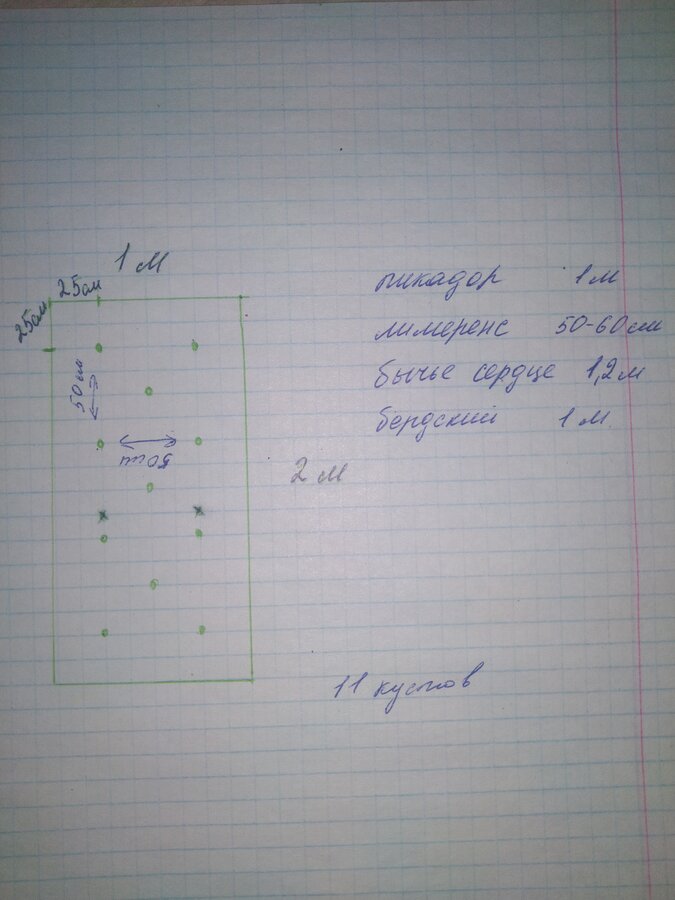 1 м
25см
25см
50см
50см
2 м
пикадор 1м
лимеренс 50-60см
бычье сердце 1,2м
бердский 1м.
11 кустов